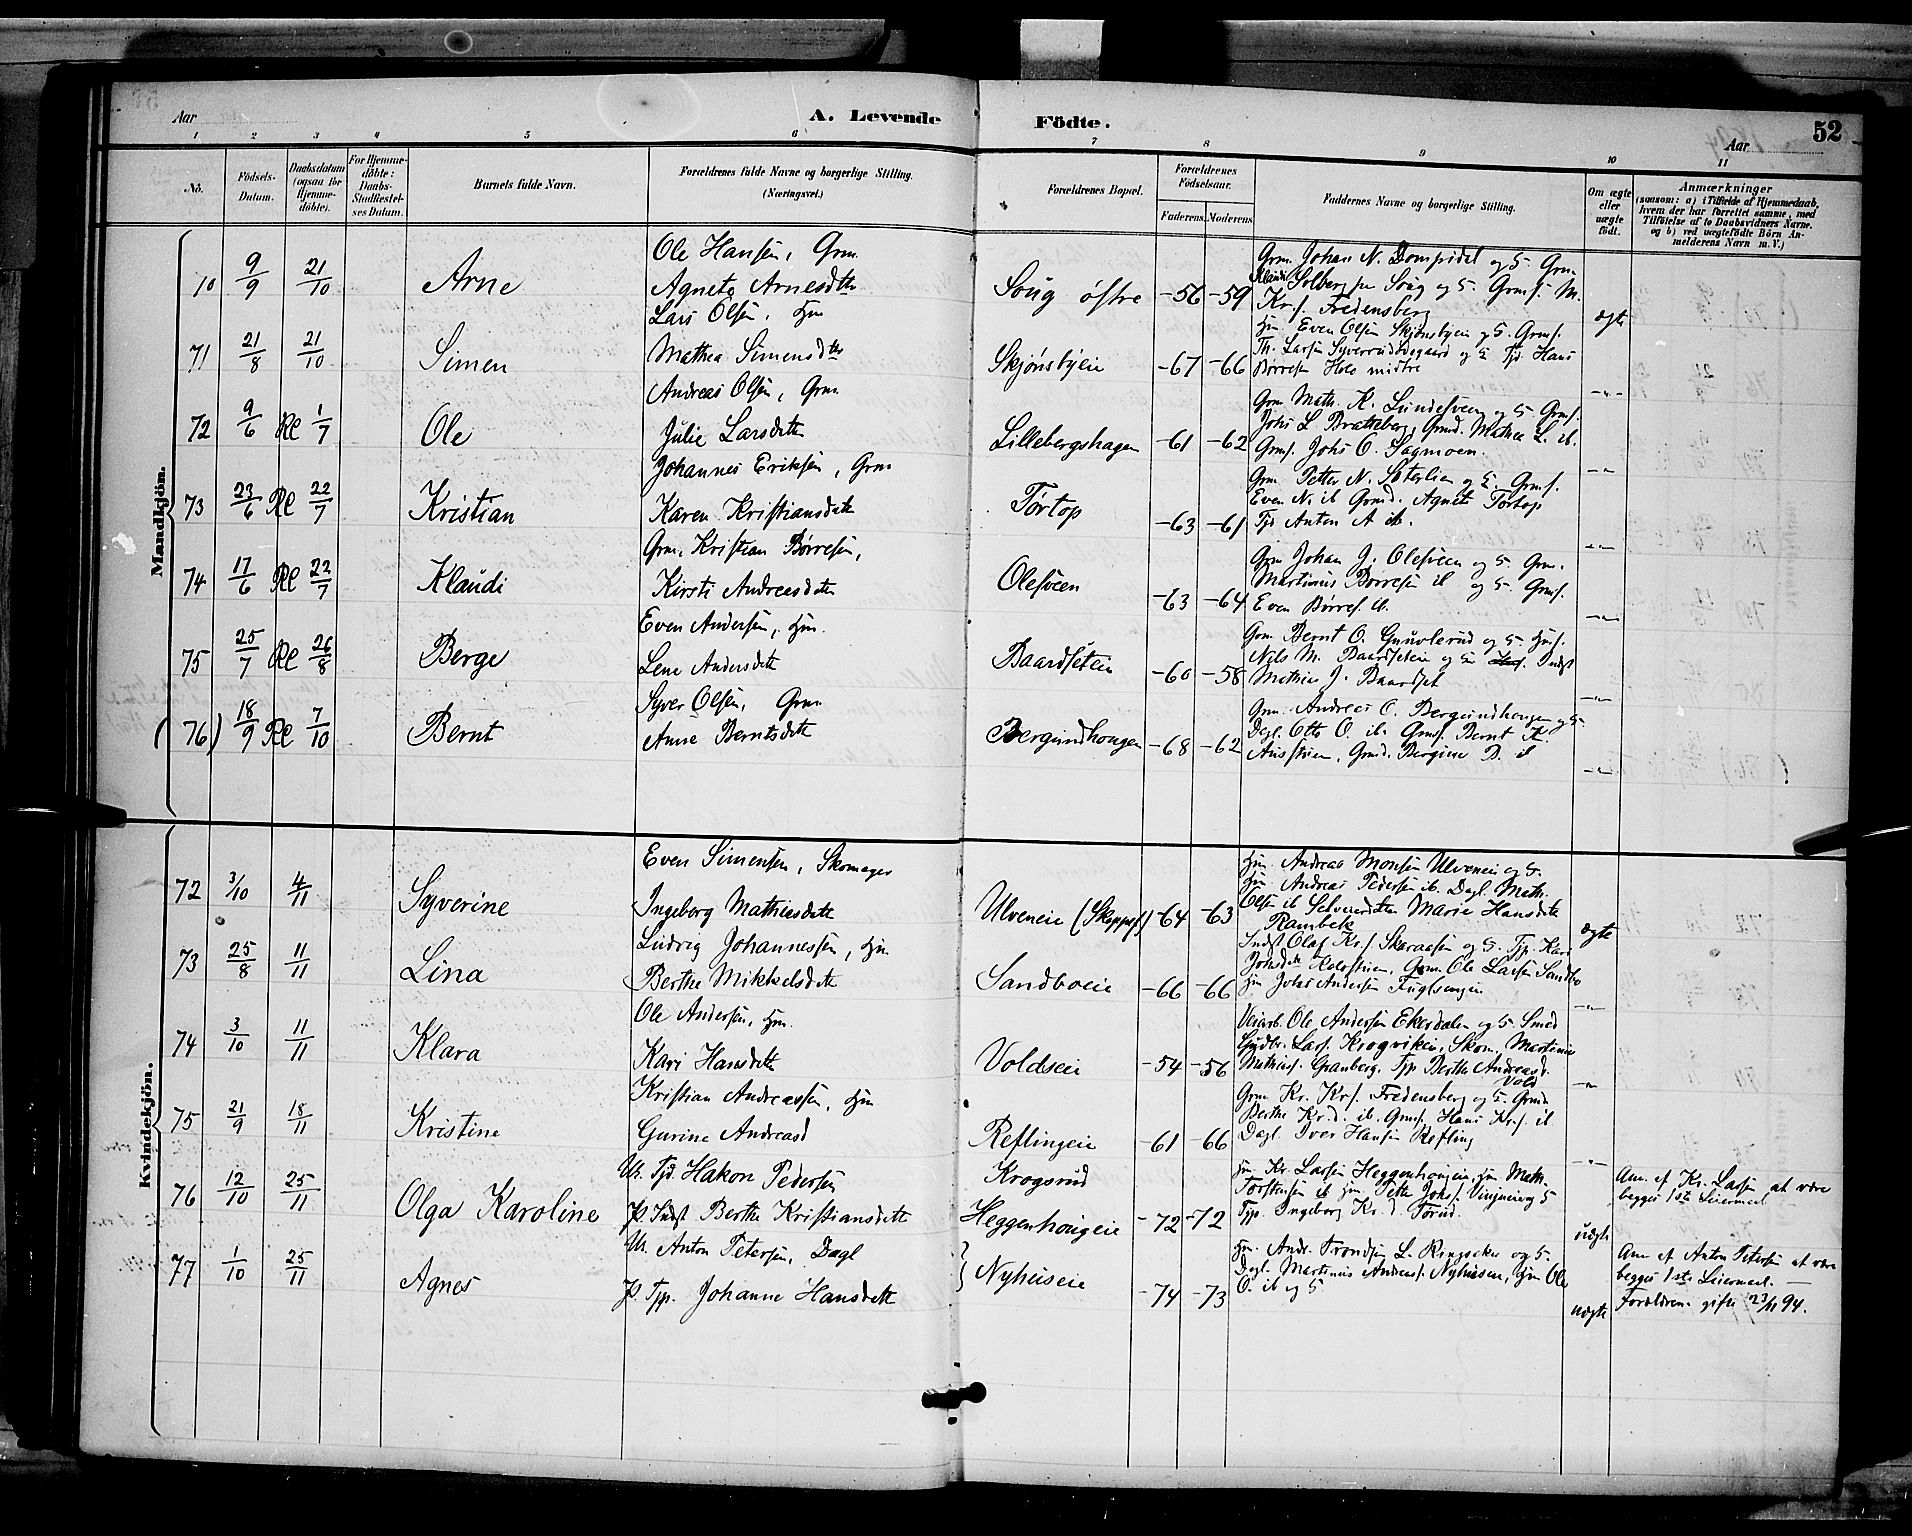 Aar
A. Levende
Födte.
Aar
52
1 2 3 4 5 6 7 8 9 10 11
No.
Födsels-Datum.
Daabsdatum (ogsaa for Hjemme-döbte).
For Hjemme-döbte: Daabs-Stadfæstelses Datum.
Barnets fulde Navn.
Forældrenes fulde Navne og borgerlige Stilling. (Næringsvei.)
Forældrenes Bopæl.
Forældrenes Födselsaar.
Faderens. Moderens.
Faddernes Navne og borgerlige Stilling.
Om ægte eller uægte födt.
Anmærkninger
(saasom: a) i Tilfælde af Hjemmedaab, hvem der har forrettet samme, med Tilföielse af to Daabsvidners Navne. og b) ved uægtefödte Börn Anmelderens Navn m. V.)
Mandkjön.
70 9/9 21/10 Arne
Ole Hansen, Grm.
Agnete Arnesdtr
Soug östre -56 -59
Grm. Johan N. Dompidel og 5. Grm.
Klaudi Solberg Soug og 5. Grmf. M.
Kr.f. Fredensberg
ægte
71 21/8 21/10 Simen
Lars Olsen, Hm
Mathea Simensdtr
Skjønsbyeie -67 -66
Hm. Even Olsen Skjønsbyeie og 5. Grmf.
Th. Larsen Syverrudødegaard og 5 Tjd. Hans
Børresen Hole midtre
-"-
72 9/6 Kl 1/7 Ole
Andreas Olsen, Grm.
Julie Larsdtt
Lillebergshagen -61 -62
Grm. Math. K. Lundesveen og 5 Grmf.
Johs L. Bratteberg, Grmd. Mathea L. ib.
Grmf. Johs O. Sagmoen.
-"-
73 23/6 Kl 22/7 Kristian
Johannes Eriksen, Grm
Karen Kristiansdtt
Tørtop -63 -61
Grm Petter N. Sæterlien og 5. Grmf.
Even N. ib Grmd. Agnete Tørtop
Tjd Anton A ib.
-"-
74 17/6 Kl 22/7 Klaudi
Grm. Kristian Børresen,
Kirsti Andreasdtt
Olesveen -63 -64
Grm Johan J. Olesveen og 5 Grm.
Martinus Børresen ib og 5 Grmf.
Even Børres. ib.
-"-
75 25/7 Kl 26/8 Berge
Even Andersen, Hm.
Lene Andersdtt
Baardseteie -60 -58
Grm Bernt O. Gunvlerud og 5 Hmf.
Nils M. Baardseteie og 5 Indst
Mathias J. Baardset
-"-
(76) 18/9 Kl 7/10 Bernt
Syver Olsen, Grm
Anne Berntsdtt
Bergundhougen -68 -62
Grm. Andreas O. Bergundhougen og 5
Dagl. Otto O. ib. Grmf. Bernt K.
Austvien, Grmd. Bergine B. ib
-"-
Kvindekjön.
72 3/10 4/11 Syverine
Even Simensen, Skomager
Ingeborg Mathiasdtt
Ulveneie (Skeppsf) -64 -63
Hm. Andreas Monsen Ulveneie og 5.
Hm Andreas Pedersen ib. Dagl. Math.
Olsen ib Selveierdatter Marie Hansdtt
Rambek
ægte
73 25/8 11/11 Lina
Ludvig Johannessen, Hm
Berthe Mikkelsdtt
Sandboeie -66 -66
Indst Olaf Kr.f Skaraasen og 5. Tjp. Kari
Johsdtt Grm Ole Larsen Sandbo
Hm Johs Andersen Fuglsengen
-"-
74 3/10 11/11 Klara
Ole Andersen, Hm.
Kari Hansdtt
Voldseie -54 -56
Veiarb. Ole Andersen Ekerdalen og 5 Smed
Gudbr. Lars. Krogvikeie, Skom. Martinus
Mathiasf. Granberg. Tjp Berthe Andreasd.
Vold
-"-
75 21/9 18/11 Kristine
Kristian Andreassen, Hm
Gurine Andreasd
Reflingeie -61 -66
Grm Kr. Kr.f. Fredensberg og 5. Grmd
Berthe Kr.d. ib. Grmf. Hans Kr.f. ib
Dagl. Iver Hansen Refling
-"-
76 12/10 25/11 Olga Karoline
Uk. Tjd. Hakon Pedersen
P. Indst Berthe Kristiansdtt
Krogsrud
Heggenhougeie -72 -72
Hm. Kr. Larsen Heggenhougeie, Hm Math.
Torstensen ib Hm Petter Johs.f. Vingneieog 5
Tjp. Ingeborg Kr. d. Torud.
uægte
Anm. af Kr. Larsen at være
begges 1ste Leiermaal
77 1/10 25/11 Agnes
Uk. Anton Petersen, Dagl
P. Tjp. Johanne Hansdtt
Nyhuseie -74 -73
Hm. Andr. Trondsen L. Ringsaker og 5.
Dagl. Martinus Andersf. Nyhuseie, Hm Ole
O. ib og 5
uægte
Anm af Anton Petersen at være
begges 1ste Leiermaal. —
Forældrene gifte 23/11 94.